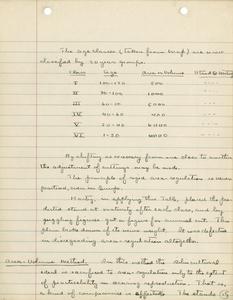 The age classes (taken from map) are now
classified by 20 year groups.
Class Age Area or Volume
I 100-120 500
II 80-100 1000
III 60-80 5000
IV 40-60
V 20-40 6000
VI 1-20 4000
By shifting as necessary from one class to another
the adjustment of cuttings may be made.
The principle of rigid area-regulation is never
practiced, even in Europe.
Hartig, in applying this Table, placed the
stand at maturity of each class, and by
juggling figures got a figure for annual cut. This
plan broke down of its own weight. It was defective
in disregarding area-regulation altogether.
Area-Volume Method. In this method the silvicultural
ideal is sacrificed to area-regulation only to the extent
of practicability in securing reproduction. That is,
a kind of compromise is effected. The stands